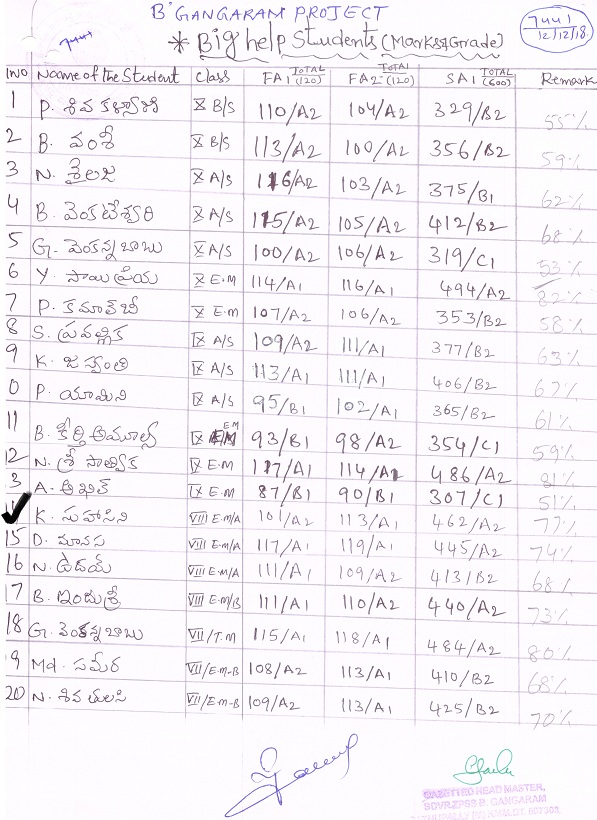 B' GANGARAM PROJECT
7441
7441
12/12/18
* Big help Students (Marks & Grade)
SNO Name of the Student Class FA1 TOTAL (120) FA2 TOTAL (120) SA1 TOTAL (600) Remark
1 P. శివ కళ్యాణి X B/S 110/A2 104/A2 329/B2 55%
2 B. వంశీ X B/S 113/A2 100/A2 356/B2 59%
3 N. శైలజ X A/S 116/A2 103/A2 375/B1 62%
4 B. వెంకటేశ్వరి X A/S 115/A2 105/A2 412/B2 68%
5 G. వెంకన్న బాబు X A/S 100/A2 106/A2 319/C1 53%
6 Y. సాయి ప్రియ X E.M 114/A1 116/A1 494/A2 82%
7 P. కమాల్ బీ X E.M 107/A2 106/A2 353/B2 58%
8 S. ప్రవల్లిక IX A/S 109/A2 111/A1 377/B2 63%
9 K. జస్వంతి IX A/S 113/A1 111/A1 406/B2 67%
0 P. యామిని IX A/S 95/B1 102/A1 365/B2 61%
11 B. కీర్తి అమూల్య IX EM 93/B1 98/A2 354/C1 59%
12 N. శ్రీ సాత్విక IX E.M 117/A1 114/A1 486/A2 81%
3 A. అఖిల్ IX E.M 87/B1 90/B1 307/C1 51%
K. సుహాసిని VIII E.M/A 101/A2 113/A1 462/A2 77%
15 D. మానస VIII E.M/A 117/A1 119/A1 445/A2 74%
16 N. ఉదయ్ VIII E.M/A 111/A1 109/A2 413/B2 68%
17 B. ఇందుశ్రీ VIII E.M/B 111/A1 110/A2 440/A2 73%
18 G. వెంకన్నబాబు VII/T.M 115/A1 118/A1 484/A2 80%
9 Md. సమీర VII/E.M-B 108/A2 113/A1 410/B2 68%
20 N. శివ తులసి VII/E.M-B 109/A2 113/A1 425/B2 70%
GAZETTED HEAD MASTER,
B. GANGARAM